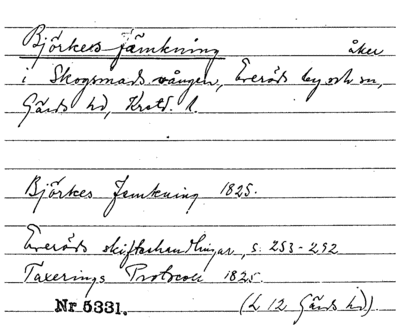 Björkes Jämkning åker
i Skogsmads vången, Everöds by och sn,
Gärds hd, Krstd. l.
Björkes Jemkning 1825.
Everöds skifteshandlingar, s. 253-292
Taxerings Protocoll 1825.
Nr 5331. (L 12 Gärds hd).